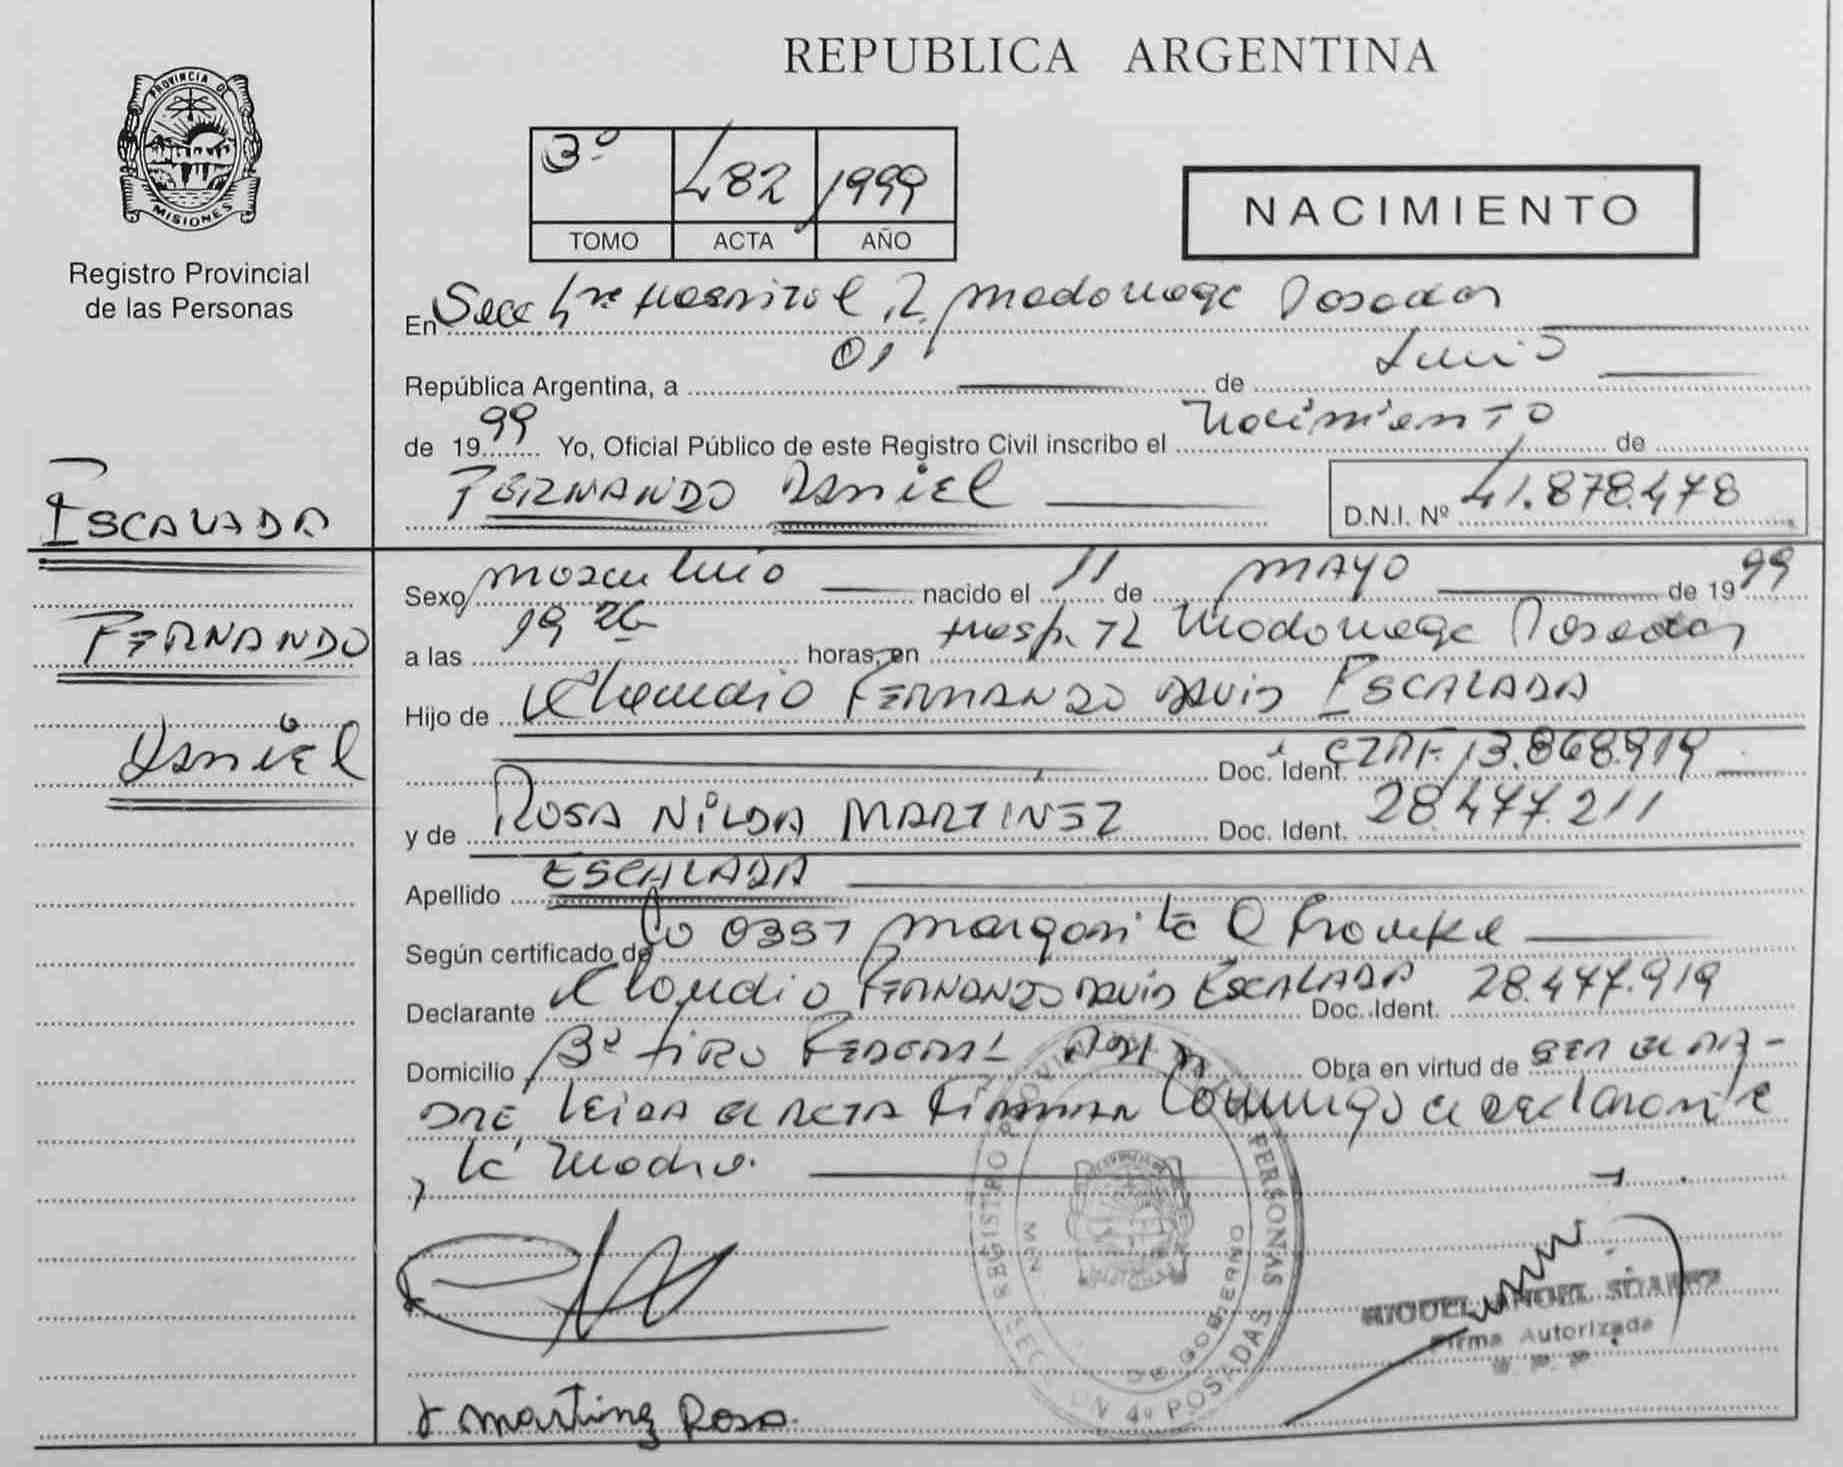 REPUBLICA ARGENTINA
PROVINCIA DE
MISIONES
Registro Provincial
de las Personas
3º 482 1999
TOMO ACTA AÑO
NACIMIENTO
En Secc 4ta Hospital R. Madariaga Posadas
República Argentina, a 01 de Junio
de 1999 Yo, Oficial Público de este Registro Civil inscribo el Nacimiento de
FERNANDO DANIEL D.N.I. Nº 41.878.478
ESCALADA
FERNANDO
DANIEL
Sexo masculino nacido el 11 de MAYO de 1999
a las 19 horas, en Hosp. R Madariaga Posadas
Hijo de Claudio FERNANDO DAVID ESCALADA
Doc. Ident. 13.868.919
y de ROSA NILDA MARTINEZ Doc. Ident. 28.477.211
Apellido ESCALADA
Según certificado de Margarita
Declarante Claudio FERNANDO DAVID ESCALADA Doc. Ident. 28.477.919
Domicilio Bº TIRO FEDERAL Obra en virtud de SER EL PA-
DRE LEIDA EL ACTA FIRMAN Conmigo el declarante
y la Madre.
REGISTRO PROVINCIAL DE LAS PERSONAS
SECCION 4º POSADAS
MIN DE GOBIERNO
MIGUEL ANGEL SUAREZ
Firma Autorizada
Martinez Rosa.